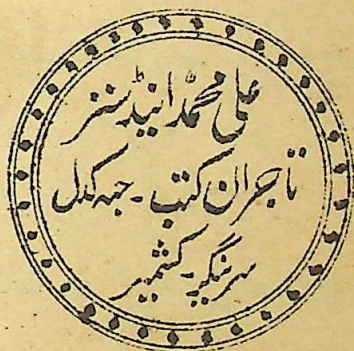 علی محمد اینڈ سنز
تاجران کتب ۔ حبہ کدل
سرینگر ۔ کشمیر